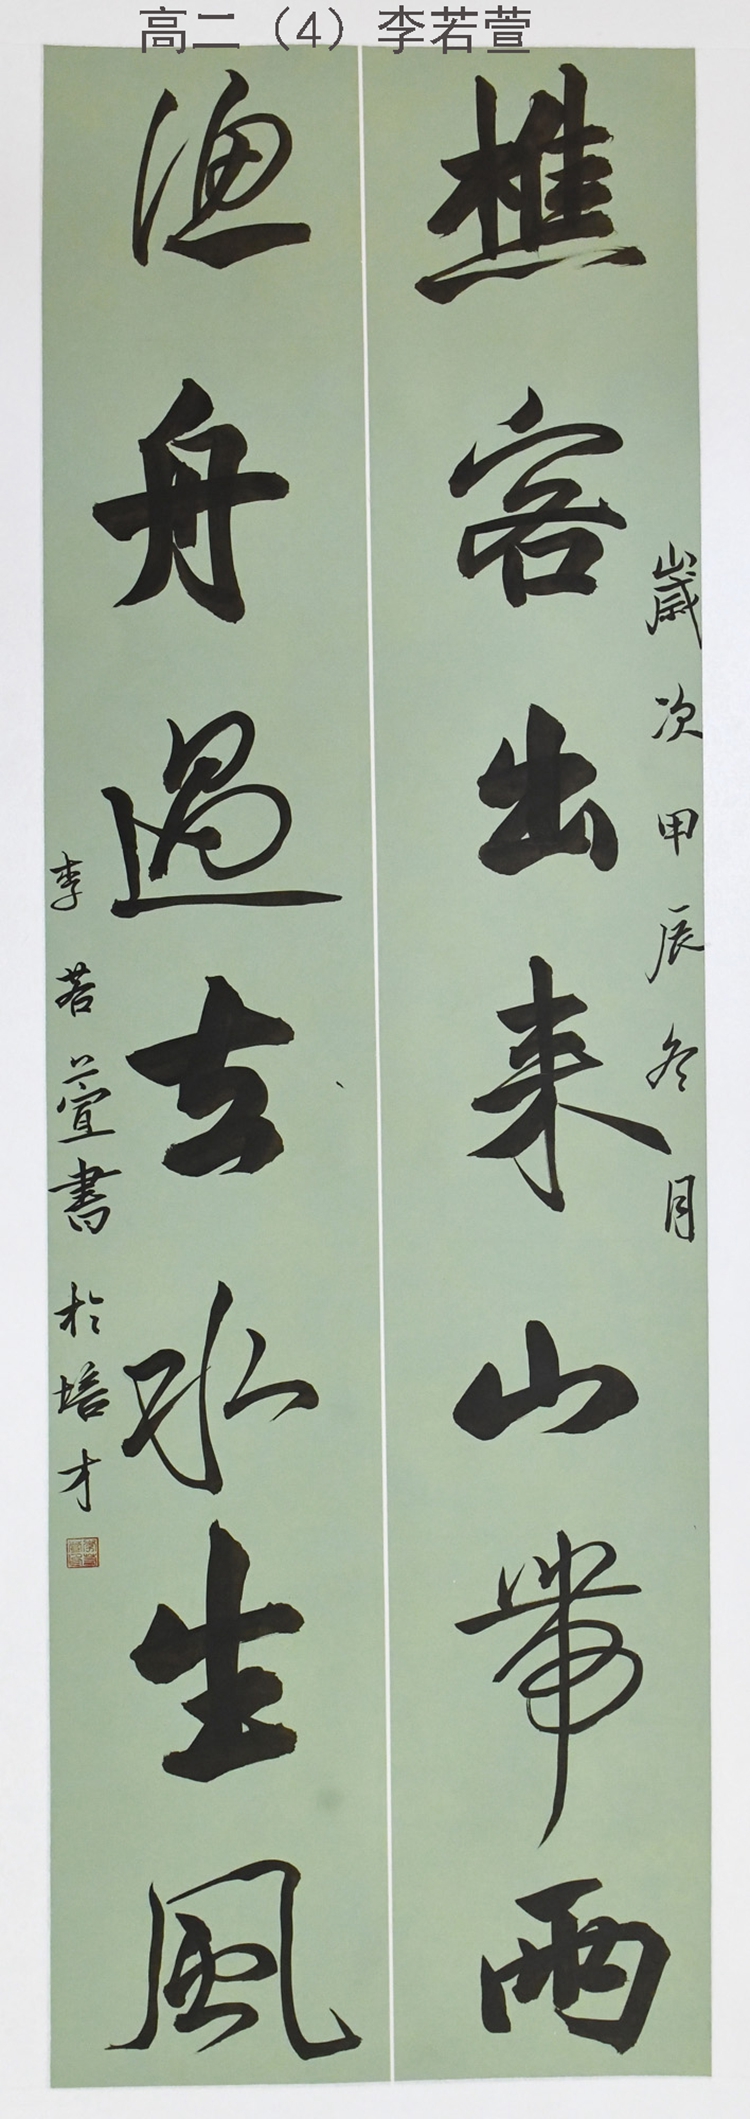 高二（4）李若萱
樵客出来山带雨
歲次甲辰冬月
漁舟過去水生風
李若萱書於培才